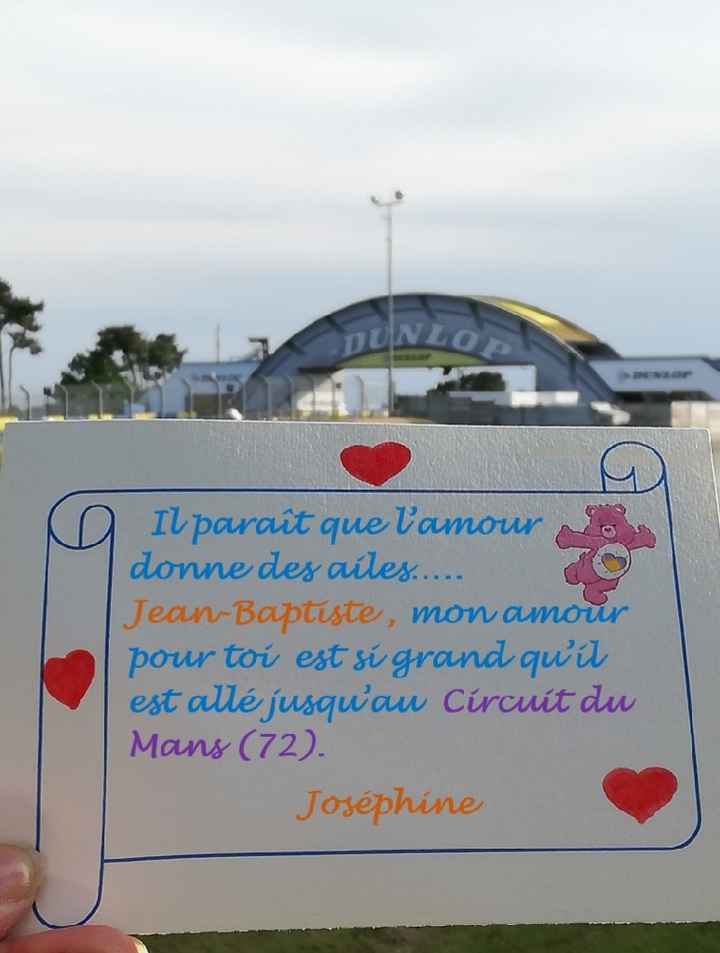 DUNLOP
DUNLOP
DUNLOP
DUNLOP
Il paraît que l’amour
donne des ailes.....
Jean-Baptiste , mon amour
pour toi est si grand qu’il
est allé jusqu’au Circuit du
Mans (72).
Joséphine